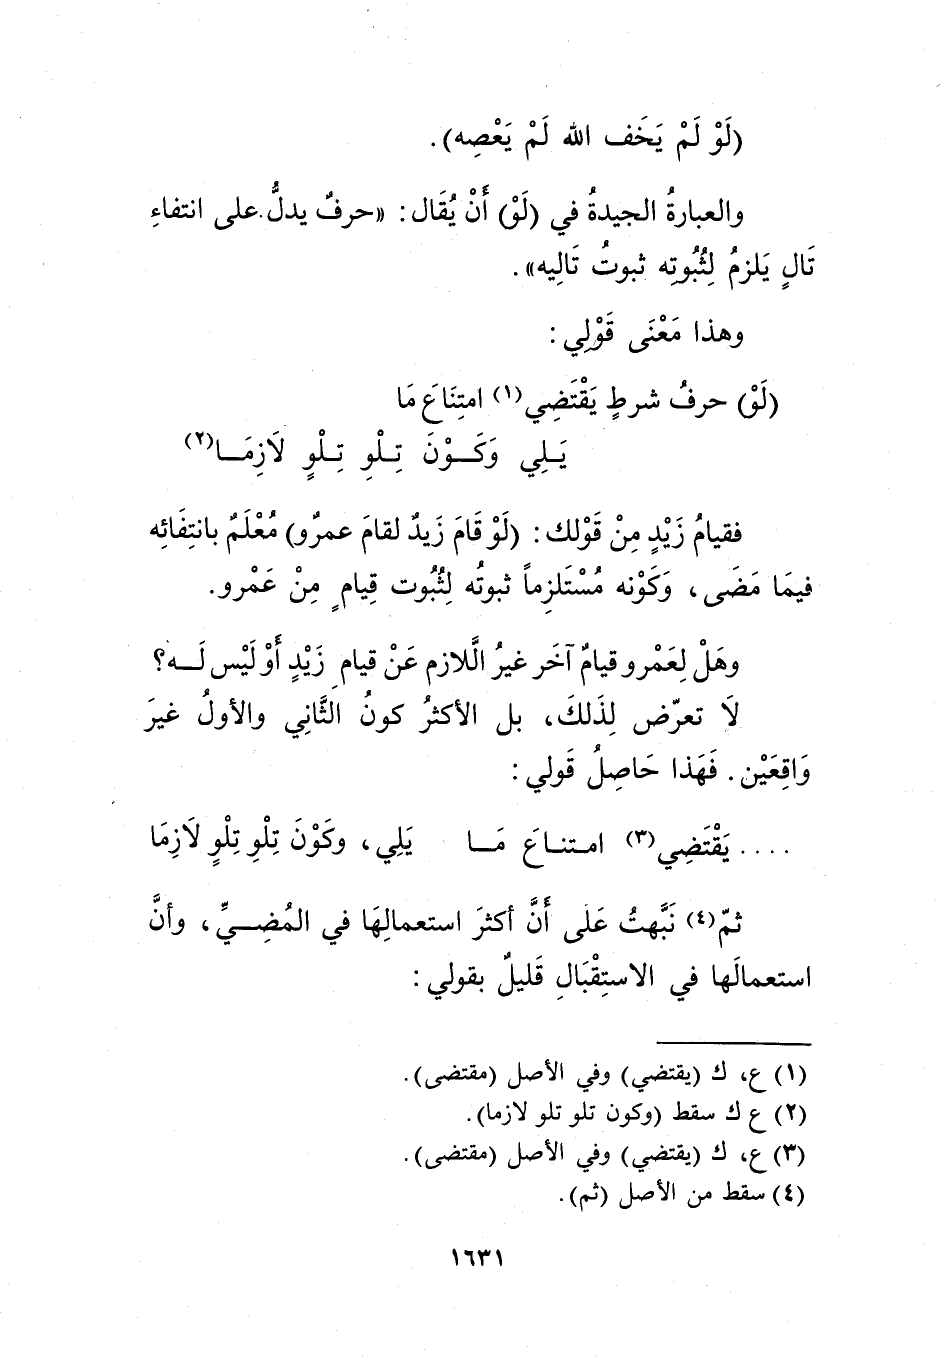 (لَوْ لَمْ يَخَف الله لَمْ يَعْصِه).
والعبارةُ الجيدةُ في (لَوْ) أَنْ يُقَال: «حرفٌ يدلُّ على انتفاءِ
تَالٍ يَلزمُ لِثُبُوتِه ثبوتُ تَالِيه».
وهذا مَعْنَى قَوْلِي:
(لَوْ) حرفُ شرطٍ يَقْتَضِي(١) امتِنَاعَ مَا
يَـلِي وَكَــوْنَ تِـلْوِ تِـلْوٍ لَازِمَــا(٢)
فقيامُ زَيْدٍ مِنْ قَوْلك: (لَوْ قَامَ زَيدٌ لقامَ عمرٌو) مُعْلَمٌ بانتِفَائِه
فيمَا مَضَى، وَكَوْنه مُسْتَلزِماً ثبوتُه لِثُبُوت قِيام ٍ مِنْ عَمْرو.
وهَلْ لِعَمْرو قيامٌ آخَر غيرُ الَّلازم عَنْ قيام ِ زَيْدٍ أَوْ لَيْس لَــه؟
لَا تعرّض لِذَلكَ، بل الأكثرُ كونُ الثَّانِي والأولُ غيرَ
وَاقِعَيْن. فَهَذا حَاصِلُ قَولي:
.... يَقْتَضِي(٣) امـتنـاعَ مَــا يَلِي، وكَوْنَ تِلْوِ تِلْوٍ لَازِمَا
ثمّ(٤) نَبَّهتُ عَلَى أَنَّ أكثرَ استعمالِهَا في المُضِــيِّ، وأنَّ
استعمالَها في الاستِقْبَالِ قَليلٌ بقولي:
(١) ع، ك (يقتضي) وفي الأصل (مقتضى).
(٢) ع ك سقط (وكون تلو تلو لازما).
(٣) ع، ك (يقتضي) وفي الأصل (مقتضى).
(٤) سقط من الأصل (ثم).
١٦٣١